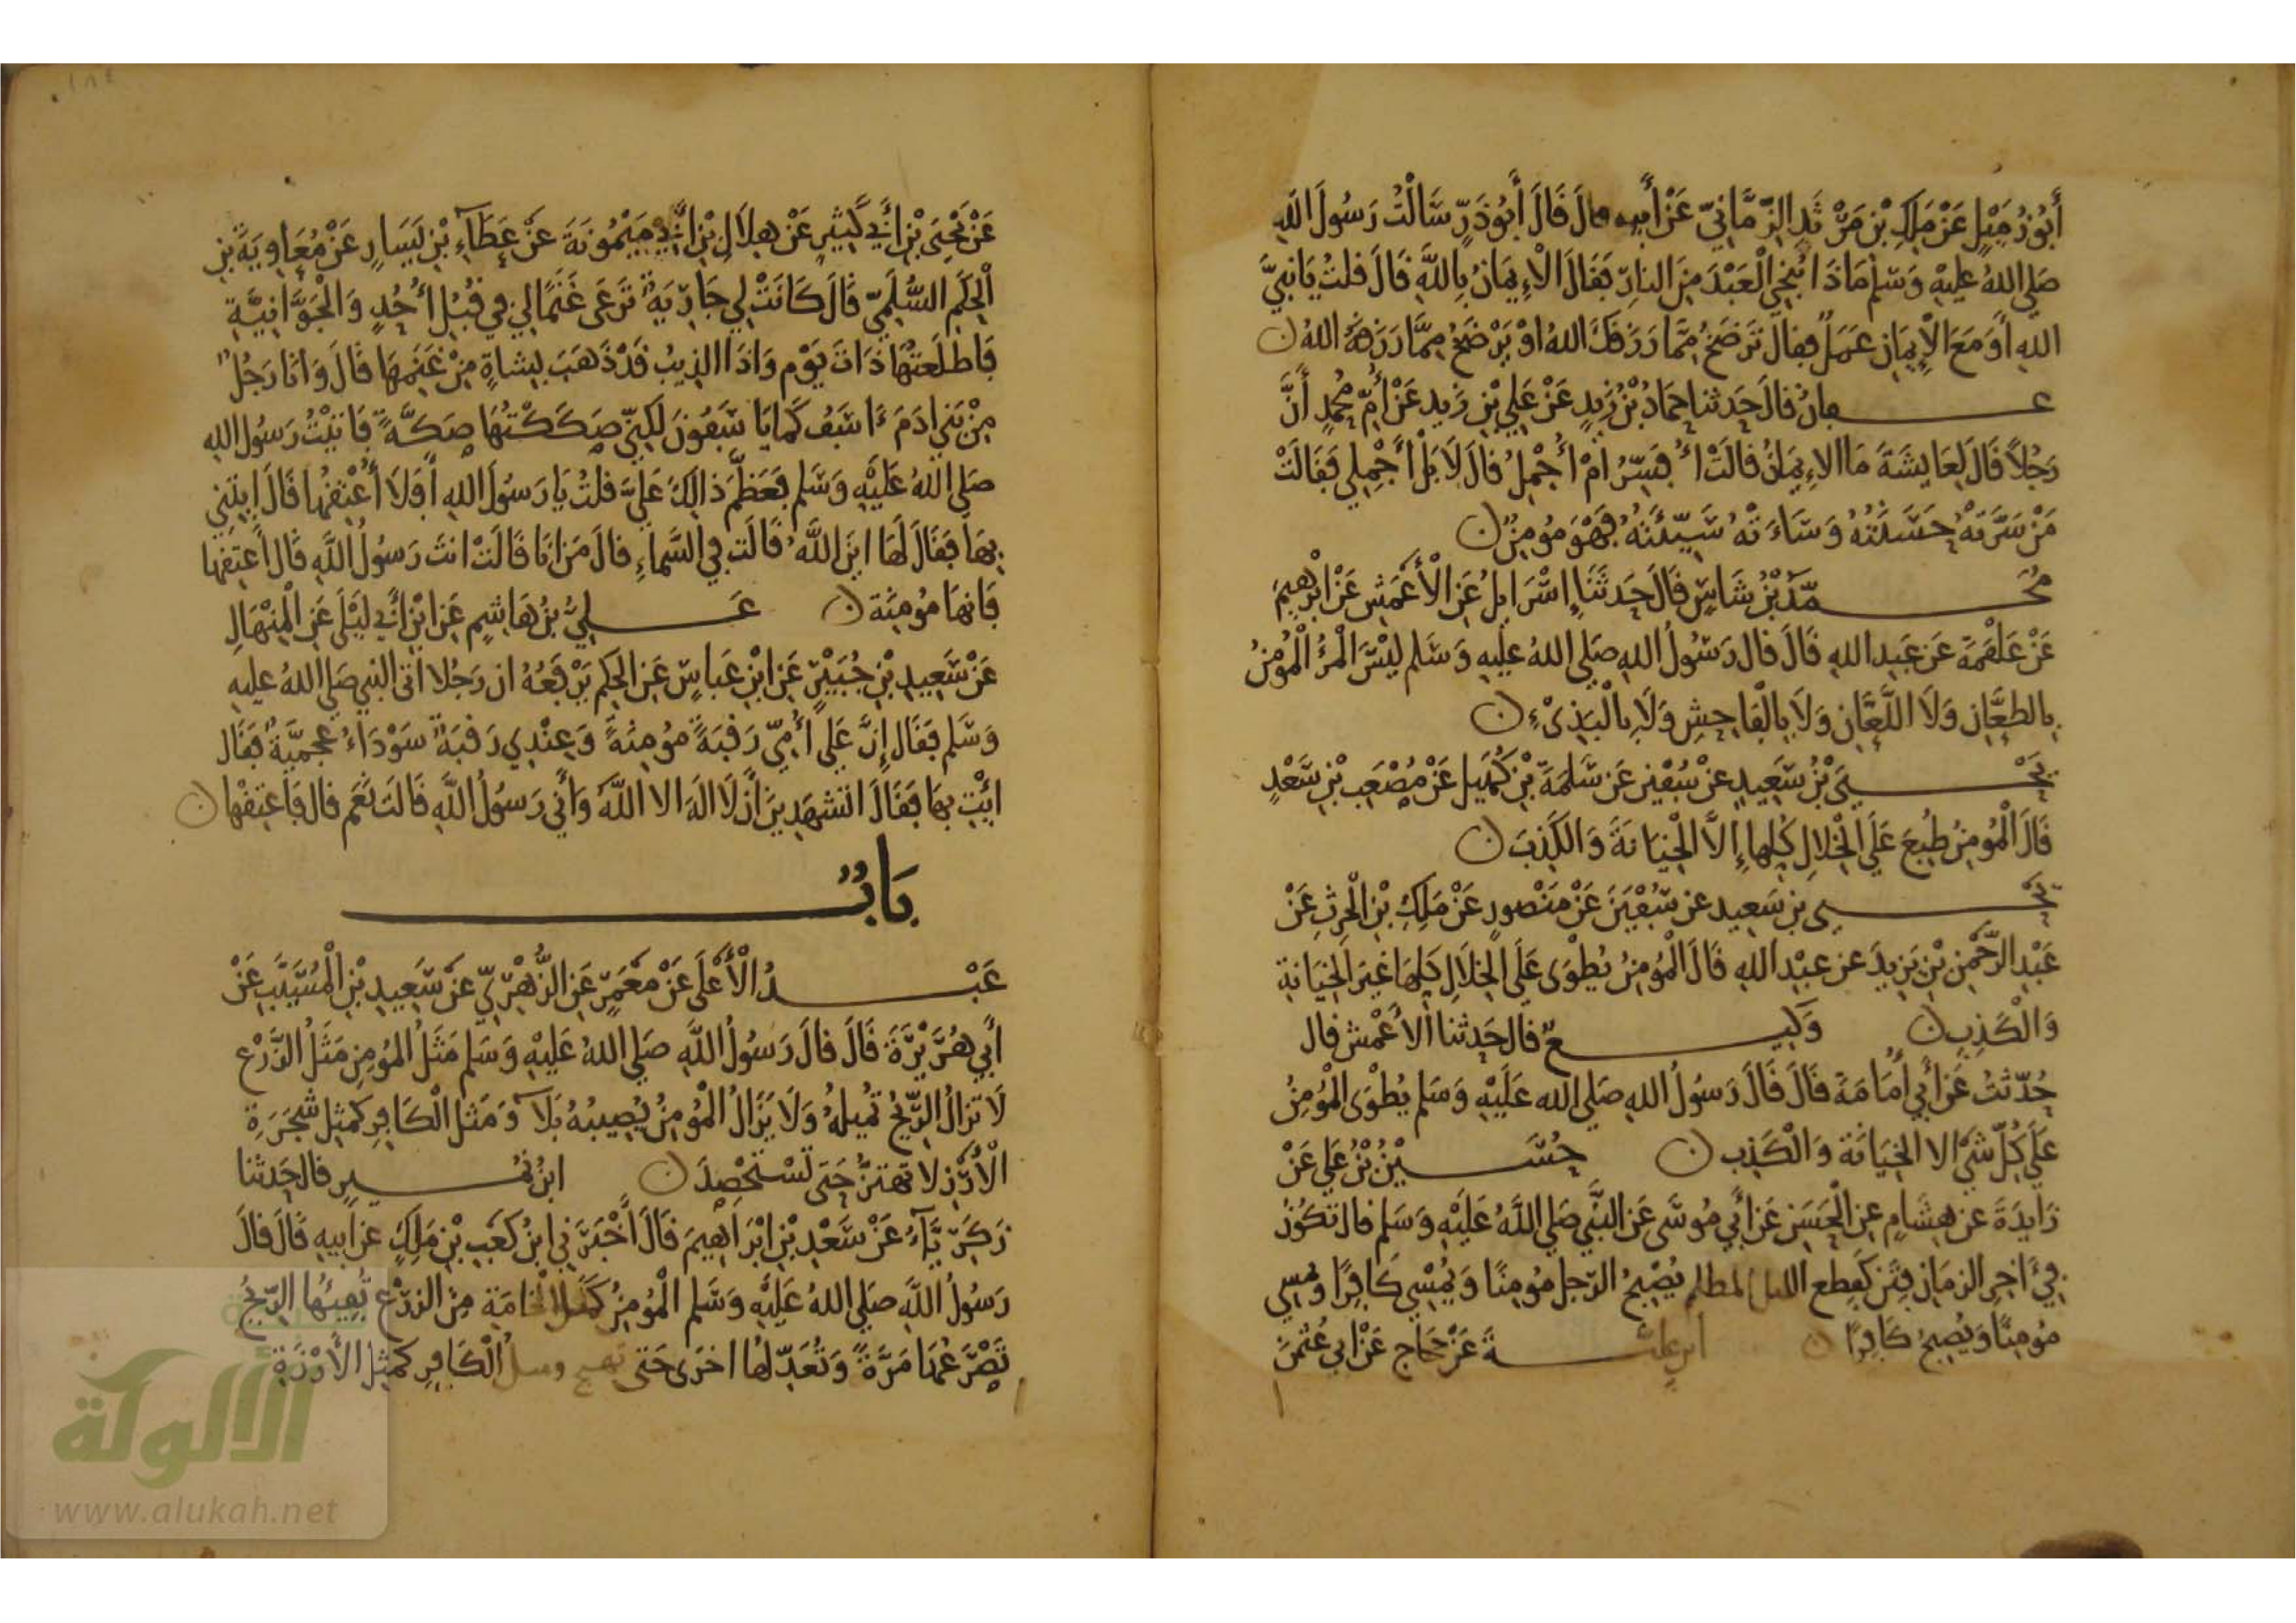 أَبُو زُمَيْلٍ عَنْ مَلِكِ بْنِ مَرْثَدِ الزِّمَّانِيّ عَنْ أَبِيهِ قال قَالَ أَبُو ذَرٍّ سَالْتُ رَسُولَ اللهِ
صَلى اللهُ عليْهِ وَسَلم مَاذَا يُنْجِي الْعَبْدَ مِنَ النارِ فَقَالَ الْإِيمَانُ بِاللَّهِ قَالَ قلتُ يَا نَبِيَّ
اللهِ أَوَمَعَ الْإِيمَانِ عَمَلٌ فقال تَرْضَخُ مِمَّا رَزَقَكَ اللهُ اوْ يَرْضَخُ مِمَّا رَزَقَهُ اللهُ ن
عفانُ قالَ حَدثنا حَمادُ بْنُ زَيدٍ عَنْ عَلِي بْنِ زَيدٍ عَنْ أُمِّ مُحمدٍ أَنَّ
رَجُلاً قَالَ لِعَايِشَةَ مَا الاِيمَانُ قالَتْ أُفَسِّرُ امْ أُجْمِلُ قالَ لَا بَلْ أَجْمِلِي فَقَالَتْ
مَنْ سَرَّتهُ حَسَنَتُهُ وَسَاءَتْهُ سَيِّئَتُهُ فَهْوَ مُومِنٌ ن
مُحَمَّدُ بْنُ سَابِقٍ قَالَ حَدثَنَا إِسْرَايلُ عَنِ الْأَعْمَشِ عَنْ ابْرهِيمَ
عَنْ عَلقَمَةَ عَن عَبدِ اللهِ قَالَ قال رَسُولُ اللهِ صَلى اللهُ عليهِ وَسَلم ليْسَ الْمَرْءُ الْمُؤْمِنُ
بِالطعَّانِ وَلَا اللَّعَّانِ وَلَا بِالْفَاحِشِ وَلَا بِالْبَذِىْءِ ن
يَحْيَى بْنُ سَعِيدٍ عَنْ سُفْينَ عَن سَلمَةَ بْنِ كُهَيلٍ عَنْ مُصْعَبِ بْنِ سَعْدٍ
قَالَ الْمُومِنُ طُبِعَ عَلَى الْخِلالِ كلِها إِلَّا الْخِيَانَةَ وَالكَذِبَ ن
يَحْيى بن سَعِيد عن سُفْيَنَ عَنْ مَنْصورٍ عَنْ مَلِكِ بْنِ الْحرِثِ عَنْ
عَبْدِ الرَّحْمنِ بْنِ يَزِيدَ عَن عَبْدِ اللهِ قَالَ الْمُومِنُ يُطْوَى عَلَى الْخلَالِ كلِهَا غيرَ الخِيَانةِ
وَالْكَذِبِ ن وَكِيعٌ قال حَدثنا الاعْمَش قال
حُدِّثتُ عَنْ أَبِي أُمَامَةَ قالَ قَالَ رَسُولُ اللهِ صَلى الله عَلَيْهِ وَسَلم يُطْوَى الْمُومِنُ
عَلَى كُلِّ شَيْ الا الخِيَانَةِ وَالْكَذِبِ ن حُسَيْنُ بْنُ عَلِي عَنْ
زَايِدَةَ عَن هِشَامٍ عِنِ الْحَسَنِ عَن أَبِي مُوسَى عَنِ النَّبِي صَلى اللَّهُ عَلَيْهِ وَسَلم قال تَكُونُ
فِي ءَاخِرِ الزمَانِ فِتَنٌ كقِطع الليل المظلم يُصْبِحُ الرّجل مُومِنًا وَيُمْسِي كَافِرًا وَيمسي
مُومِنًا وَيُصبِحُ كَافِرًا ن ابن عليةَ عَنْ حَجاج عَنْ ابي عُثمَنَ
عَنْ يَحْيَى بْنِ أَبِي كَثِيرٍ عَنْ هِلَالِ بْنِ أَبِي مَيْمُونَةَ عَنْ عَطَآءِ بْنِ يَسَارٍ عَنْ مُعَاوِيَةَ بْنِ
الْحكَمِ السُّلَمِيّ قَالَ كَانَتْ لِي جَارِيَةٌ تَرعَى غَنَمًا لِي فِي قُبُلِ أُحُدٍ وَالْجَوَّانِيَّةِ
فَاطلَعتُهَا ذَاتَ يَوْمٍ وَاذَا الذِيبُ قَدْ ذَهَبَ بِشَاةٍ مِنْ غَنَمِهَا قَالَ وَانَا رَجُلٌ
مِنْ بَنِي ادَمَ ءَاسَفُ كَمَا يَاسَفُونَ لَكِنِّي صَكَكْتُهَا صَكَّةً فَاتَيْتُ رَسُولَ اللهِ
صَلى اللهُ عَلَيْهِ وَسَلم فعَظَّمَ ذالِكَ عَلَيَّ قلتُ يَا رَسُولَ اللهِ أَفَلَا أُعْتِقُهَا قَالَ ايتِنِي
بِهَا فَقَالَ لَهَا ايْنَ اللَّهُ قَالَت فِي السَّماءِ قالَ مَنْ انَا قَالَتْ انتَ رَسُولُ اللَّهِ قَالَ اعتِقهَا
فَانهَا مُومِنَة ن عَلِيُّ بْنُ هَاشِمٍ عَنِ ابْنِ أَبِي لَيْلَى عَنِ الْمِنْهَالِ
عَنْ سَعِيدِ بْنِ جُبَيْرٍ عَنِ ابْنِ عَباسٍ عَنِ الحكَمِ يَرْفَعُهُ ان رَجُلا اتَى النبي صَلى اللهُ عليهِ
وَسَلم فَقَال إِنَّ عَلَى أُمِّي رَقَبَةً مُومِنَةً وَعِنْدِي رَقَبَةٌ سَوْدَاءُ عجَمِيَّةٌ فَقَال
ايْتِ بهَا فَقَالَ اتَشهَدِينَ أَن لَا الَهَ الا اللَّهُ وَأَنِّي رَسُولُ اللَّهِ قَالَتَ نَعَم قال فَاعتِقْها ن
بَابٌ
عَبْدُ الْأَعْلَى عَنْ مَعْمَرٍ عَنِ الزُّهْرِيّ عَنْ سَعِيدِ بْنِ الْمُسَيَّبِ عَنْ
أَبِي هُرَيْرَةَ قَالَ قالَ رَسُولُ اللَّهِ صَلى اللهُ عَلَيْهِ وَسَلم مَثَلُ المُؤمِنِ مَثَلُ الزَّرْعِ
لَا تزالُ الرِّيحُ تُمِيلهُ وَلَا يَزَالُ الْمُومِنُ يُصِيبُهُ بَلَاءٌ وَمَثلُ الْكَافِرِ كَمثلِ شَجَرَةِ
الْأُرْزِ لا تهتزُّ حَتى تَسْتَحْصِدَ ن ابنُ نُمَيرٍ قال حَدثنا
زَكَرِيَّآءُ عَنْ سَعْدِ بْنِ ابْرَاهِيمَ قَالَ أَخْبَرَنِي ابْنُ كَعْبِ بْنِ مَلِكٍ عَن ابيهِ قَالَ قالَ
رَسُولُ اللَّهِ صَلى اللهُ عَلَيْهِ وَسَلم الْمُومِنُ كَمَثَلِ الْخَامَةِ مِنَ الزرْعِ تُفِيئُهَا الرِّيحُ
تَصْرَعُهَا مَرَّةً وَتُعَدِّلهُا اخرَى حَتى تهيج ومثل الْكَافِرِ كَمثلِ الأَرْزَةِ
الألوكة
www.alukah.net